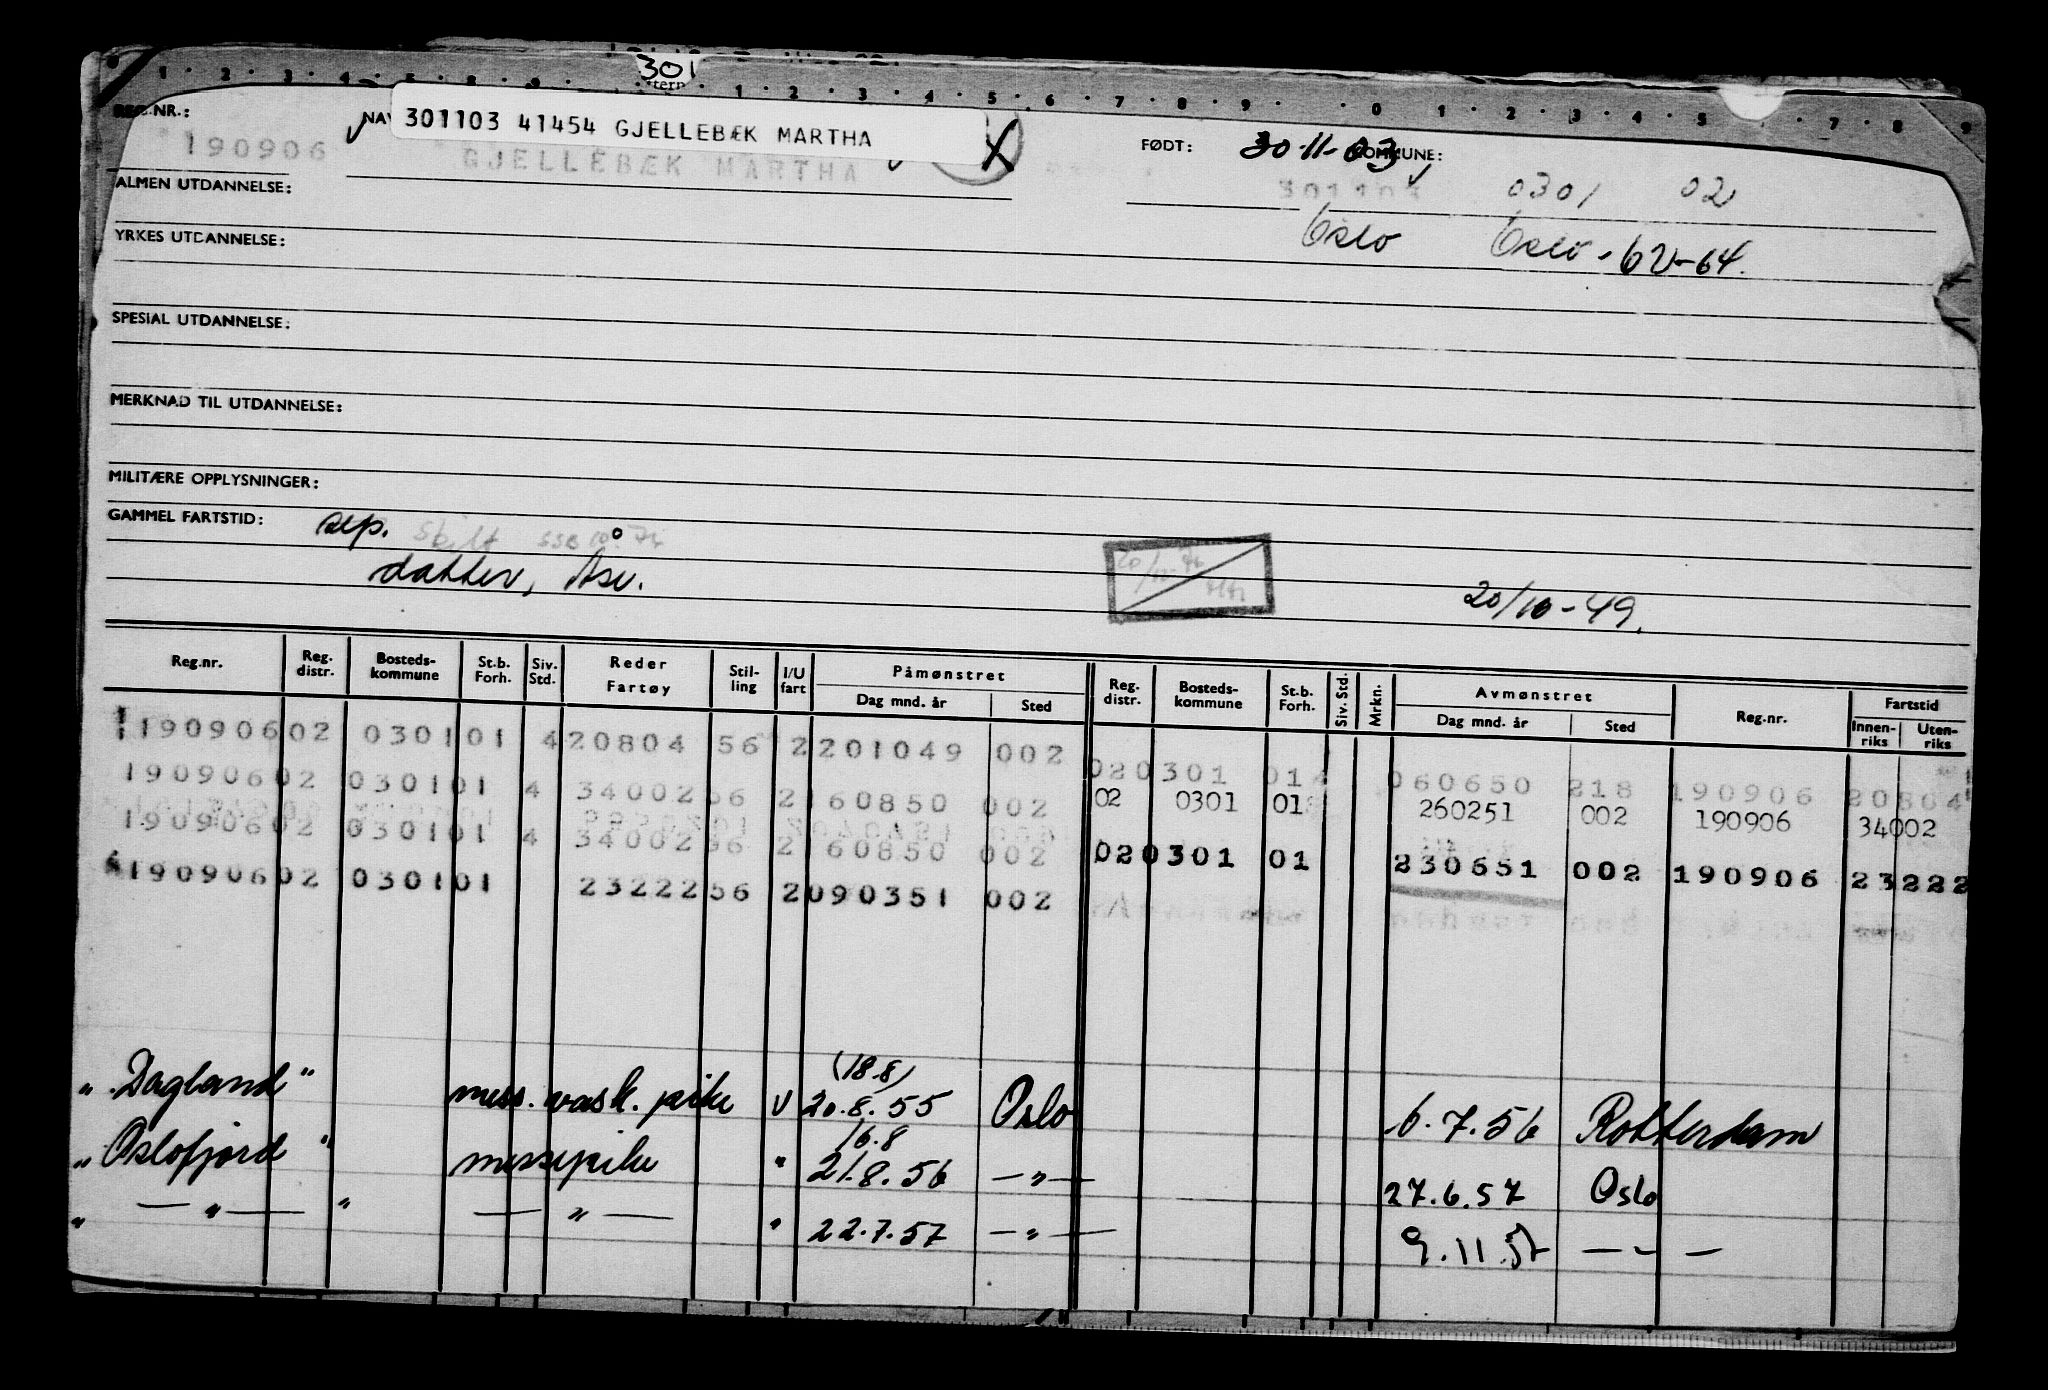 301
REG.NR.:
301103 41454 GJELLEBÆK MARTHA
FØDT: 30-11-03
KOMMUNE:
190906 GJELLEBÆK MARTHA 301103 0301 02
ALMEN UTDANNELSE:
Oslo Oslo - 62-64.
YRKES UTDANNELSE:
SPESIAL UTDANNELSE:
MERKNAD TIL UTDANNELSE:
MILITÆRE OPPLYSNINGER:
GAMMEL FARTSTID: sep. skilt
datter,
20/10-49.
Reg.nr. Reg. distr. Bosteds-kommune St.b. Forh. Siv. Std. Reder Fartøy Stil-ling I/U fart Påmønstret Dag mnd. år Sted Reg. distr. Bosteds-kommune St.b. Forh. Siv. Std. Mrkn. Avmønstret Dag mnd. år Sted Reg.nr. Fartstid Innen-riks Uten-riks
190906 02 0301 01 4 20804 56 2 201049 002 02 0301 01 4 060650 218 190906 20804
190906 02 0301 01 4 34002 56 2 160850 002 02 0301 01 260251 002 190906 34002
190906 02 0301 01 4 34002 56 2 160850 002 02 0301 01 230651 002 190906 23222
190906 02 0301 01 23222 56 2 090351 002
(18.8)
"Dagland" mess. vask. pike U 20.8.55 Oslo 6.7.56 Rotterdam
16.8
"Oslofjord" messepike " 21.8.56 — " — 27.6.57 Oslo
" — " — " — " — " 22.7.57 — " — 9.11.57 — " —